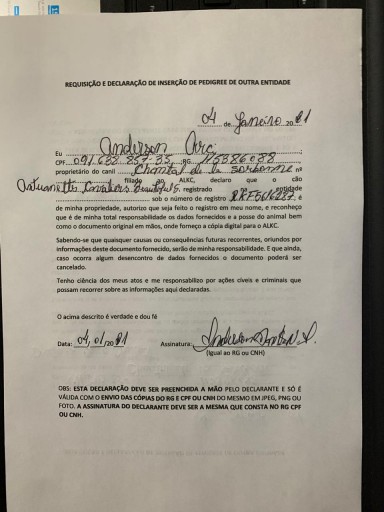 REQUISIÇÃO E DECLARAÇÃO DE INSERÇÃO DE PEDIGREE DE OUTRA ENTIDADE
04 de Janeiro 2021
Eu Anderson
CPF 091.638.857-35 RG
proprietário do canil Chantal de la sorbonne nº
filiado ao ALKC, declaro que o cão
registrado entidade
sob o número de registro é
de minha propriedade, autorizo que seja feito o registro em meu nome, e reconheço
que é de minha total responsabilidade os dados fornecidos e a posse do animal bem
como o documento original em mãos, onde forneço a cópia digital para o ALKC.
Sabendo-se que quaisquer causas ou consequências futuras recorrentes, oriundos por
informações deste documento fornecido, serão de minha responsabilidade. E que ainda,
caso ocorra algum desencontro de dados fornecidos o documento poderá ser
cancelado.
Tenho ciência dos meus atos e me responsabilizo por ações cíveis e criminais que
possam recorrer as informações aqui declaradas.
O acima descrito é verdade e dou fé
Data: 04/01/2021 Assinatura: Anderson
(Igual ao RG ou CNH)
OBS: ESTA DECLARAÇÃO DEVE SER PREENCHIDA A MÃO PELO DECLARANTE E SÓ É
VÁLIDA COM O ENVIO DAS CÓPIAS DO RG E CPF OU CNH DO MESMO EM JPEG, PNG OU
FOTO. A ASSINATURA DO DECLARANTE DEVE SER A MESMA QUE CONSTA NO RG CPF
OU CNH.